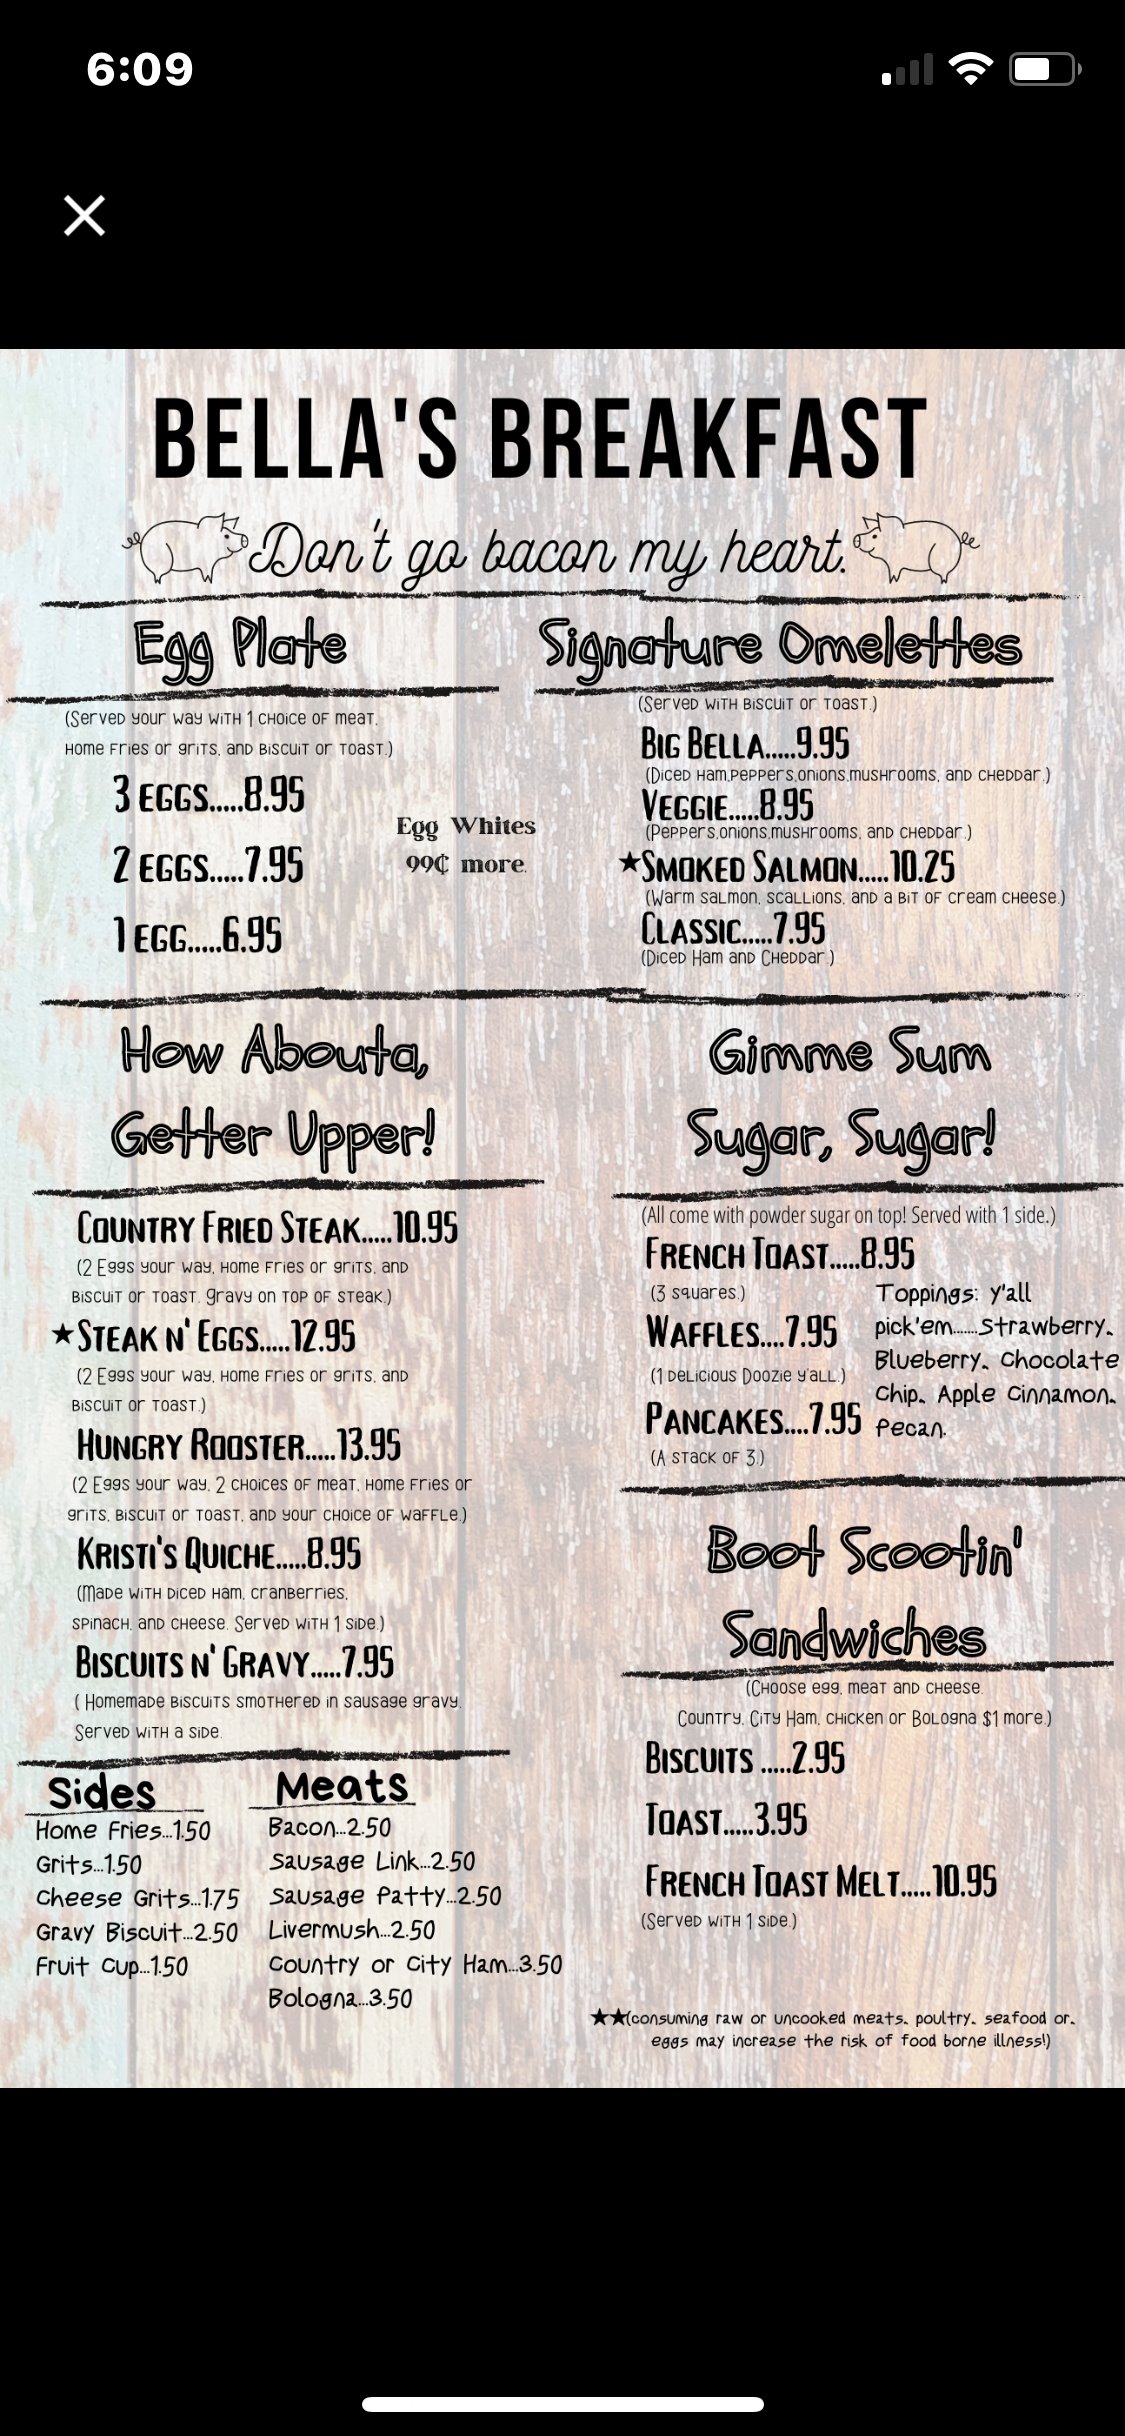 6:09
BELLA'S BREAKFAST
Don't go bacon my heart.
Egg Plate
(Served your way with 1 choice of meat,
home fries or grits, and biscuit or toast.)
3 EGGS.....8.95
2 EGGS.....7.95
1 EGG.....6.95
Egg Whites
99¢ more.
Signature Omelettes
(Served with biscuit or toast.)
BIG BELLA.....9.95
(Diced ham,peppers,onions,mushrooms, and cheddar.)
VEGGIE.....8.95
(Peppers,onions,mushrooms, and cheddar.)
★SMOKED SALMON.....10.25
(Warm salmon, scallions, and a bit of cream cheese.)
CLASSIC.....7.95
(Diced Ham and Cheddar.)
How Abouta,
Getter Upper!
COUNTRY FRIED STEAK.....10.95
(2 Eggs your way, home fries or grits, and
biscuit or toast. Gravy on top of steak.)
★STEAK N' EGGS.....12.95
(2 Eggs your way, home fries or grits, and
biscuit or toast.)
HUNGRY ROOSTER.....13.95
(2 Eggs your way, 2 choices of meat, home fries or
grits, biscuit or toast, and your choice of waffle.)
KRISTI'S QUICHE.....8.95
(Made with diced ham, cranberries,
spinach, and cheese. Served with 1 side.)
BISCUITS N' GRAVY.....7.95
( Homemade biscuits smothered in sausage gravy.
Served with a side.
Sides
Home Fries...1.50
Grits...1.50
Cheese Grits...1.75
Gravy Biscuit...2.50
Fruit Cup...1.50
Meats
Bacon...2.50
Sausage Link...2.50
Sausage Patty...2.50
Livermush...2.50
Country or City Ham...3.50
Bologna...3.50
Gimme Sum
Sugar, Sugar!
(All come with powder sugar on top! Served with 1 side.)
FRENCH TOAST.....8.95
(3 squares.)
WAFFLES....7.95
(1 delicious Doozie y'all.)
PANCAKES....7.95
(A stack of 3.)
Toppings: y'all
pick'em......Strawberry,
Blueberry, Chocolate
Chip, Apple Cinnamon,
Pecan.
Boot Scootin'
Sandwiches
(Choose egg, meat and cheese.
Country, City Ham, chicken or Bologna $1 more.)
BISCUITS .....2.95
TOAST.....3.95
FRENCH TOAST MELT.....10.95
(Served with 1 side.)
★★(consuming raw or uncooked meats, poultry, seafood or,
eggs may increase the risk of food borne illness!)